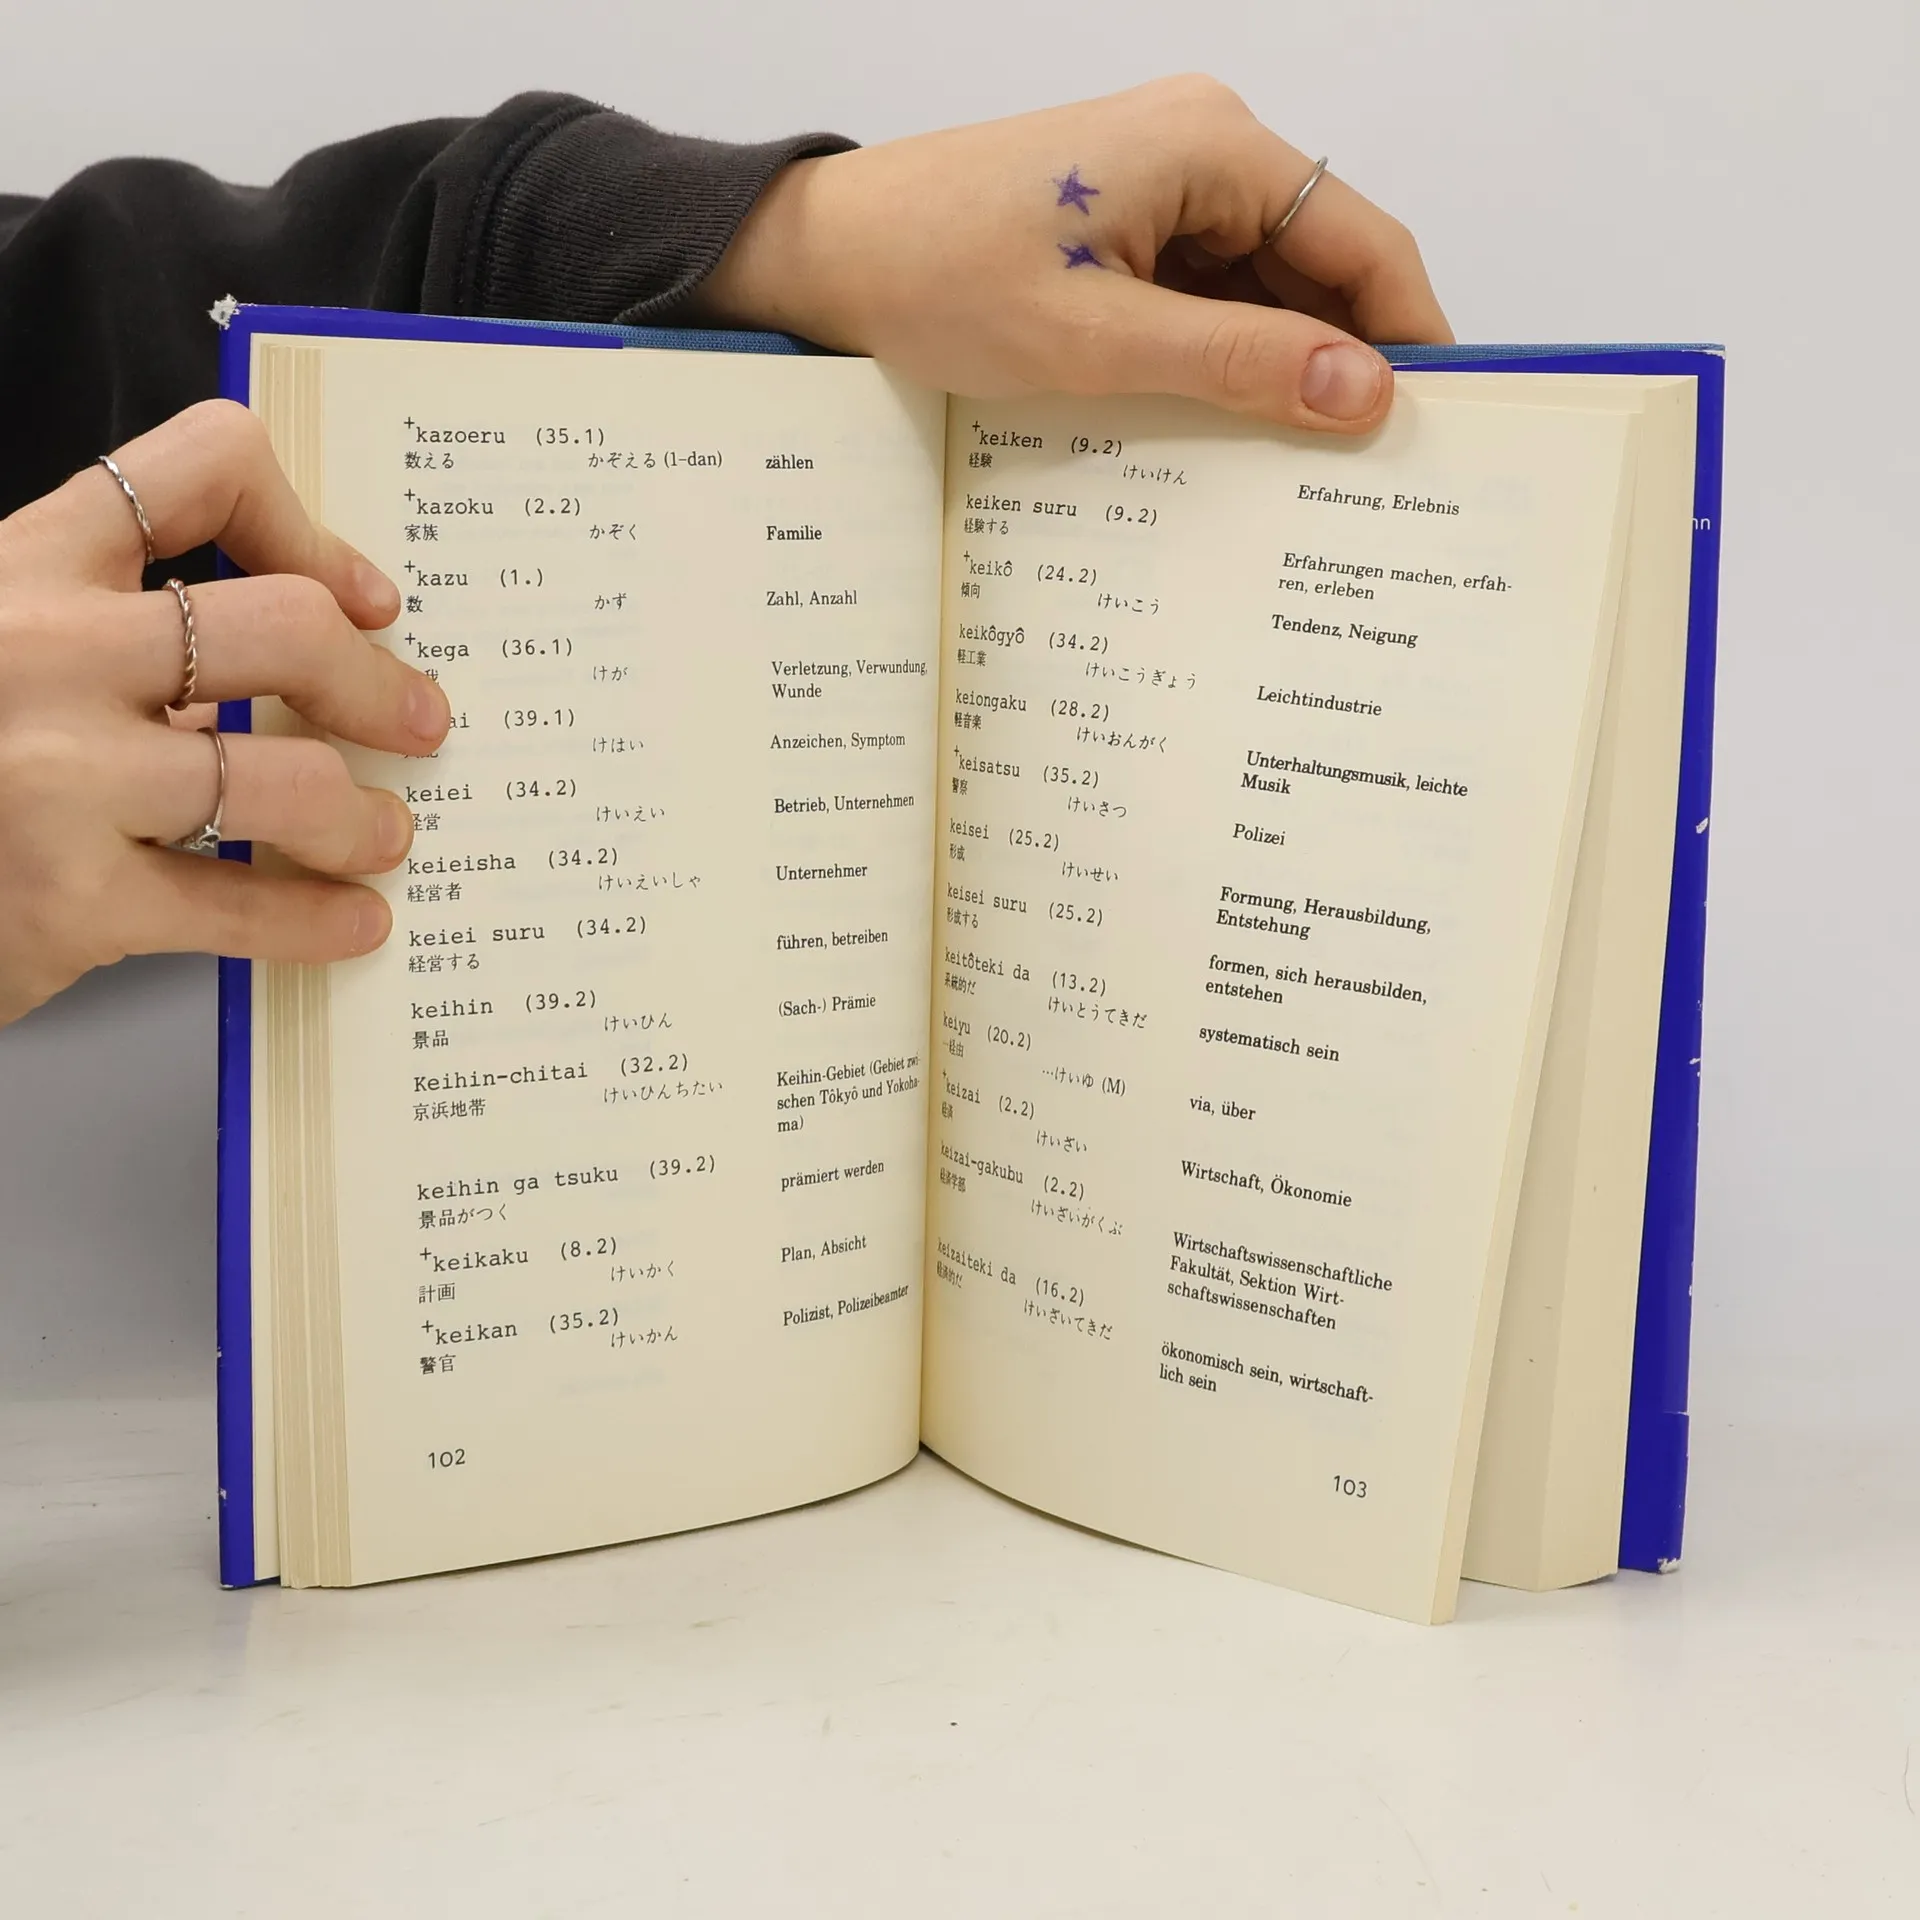 +kazoeru (35.1)
数える かぞえる (1-dan) zählen
+kazoku (2.2)
家族 かぞく Familie
+kazu (1.)
数 かず Zahl, Anzahl
+kega (36.1)
我 けが Verletzung, Verwundung,
Wunde
ai (39.1)
けはい Anzeichen, Symptom
keiei (34.2)
経営 けいえい Betrieb, Unternehmen
keieisha (34.2)
経営者 けいえいしゃ Unternehmer
keiei suru (34.2)
経営する führen, betreiben
keihin (39.2)
景品 けいひん (Sach-) Prämie
Keihin-chitai (32.2)
京浜地帯 けいひんちたい Keihin-Gebiet (Gebiet zwi-
schen Tôkyô und Yokoha-
ma)
keihin ga tsuku (39.2)
景品がつく prämiert werden
+keikaku (8.2)
計画 けいかく Plan, Absicht
+keikan (35.2)
警官 けいかん Polizist, Polizeibeamter
102
+keiken (9.2)
経験 けいけん Erfahrung, Erlebnis
keiken suru (9.2)
経験する Erfahrungen machen, erfah-
ren, erleben
+keikô (24.2)
傾向 けいこう Tendenz, Neigung
keikôgyô (34.2)
軽工業 けいこうぎょう Leichtindustrie
keiongaku (28.2)
軽音楽 けいおんがく Unterhaltungsmusik, leichte
Musik
+keisatsu (35.2)
警察 けいさつ Polizei
keisei (25.2)
形成 けいせい Formung, Herausbildung,
Entstehung
keisei suru (25.2)
形成する formen, sich herausbilden,
entstehen
keitôteki da (13.2)
系統的だ けいとうてきだ systematisch sein
keiyu (20.2)
…経由 …けいゆ (M) via, über
+keizai (2.2)
経済 けいざい Wirtschaft, Ökonomie
keizai-gakubu (2.2)
経済学部 けいざいがくぶ Wirtschaftswissenschaftliche
Fakultät, Sektion Wirt-
schaftswissenschaften
keizaiteki da (16.2)
経済的だ けいざいてきだ ökonomisch sein, wirtschaft-
lich sein
103